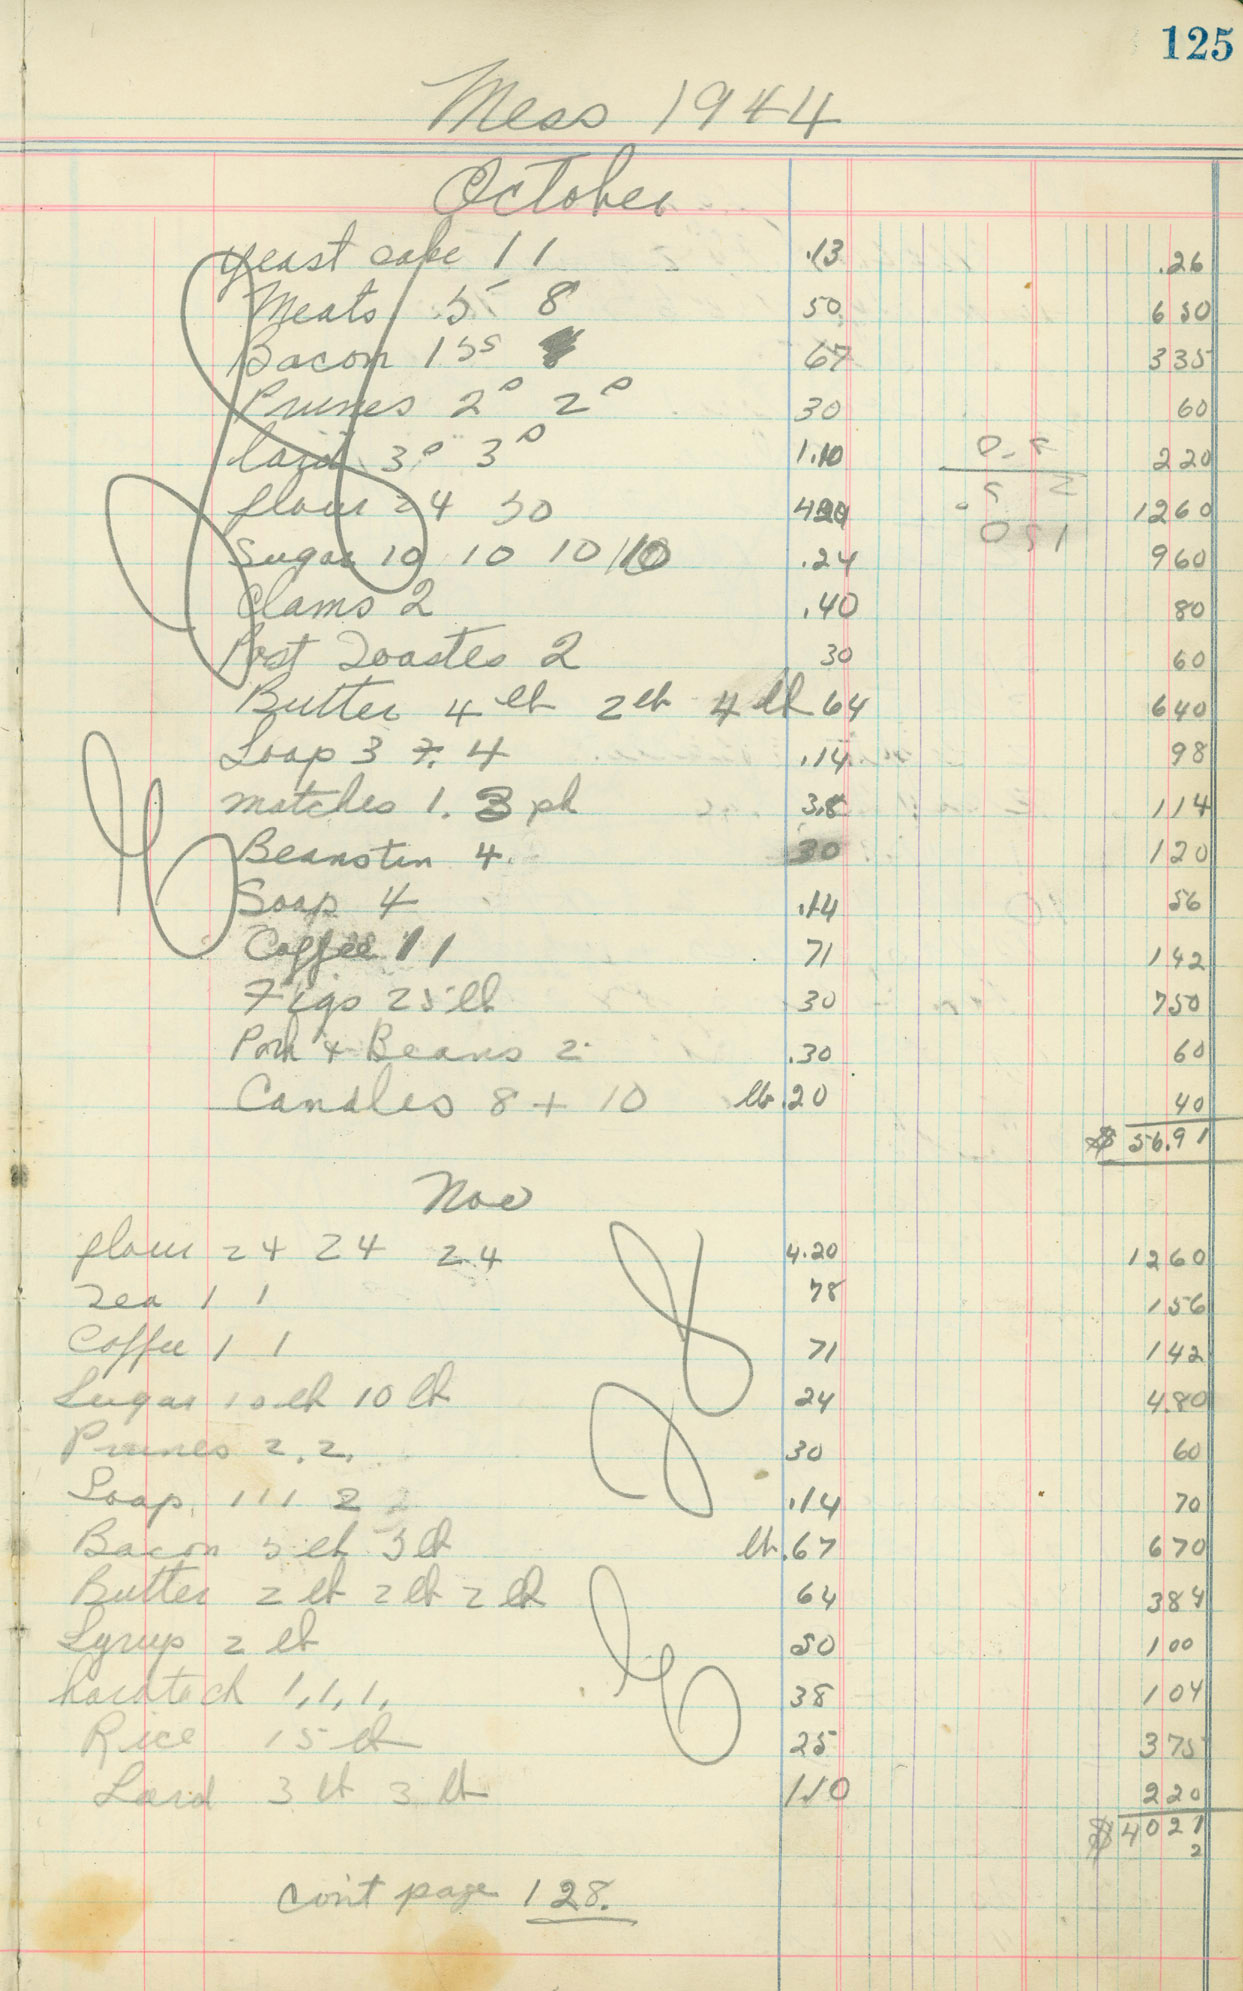 125
Mess 1944
October
yeast cake 1 1 .13 .26
Meats 5 8 50 650
Bacon 1 5s 67 335
Prunes 2# 2# 30 60
lard 3# 3# 1.10 220
flour 24 50 420 1260
Sugar 10 10 10 10 .24 960
Clams 2 .40 80
Post Toastes 2 30 60
Butter 4 lb 2 lb 4 lb 64 640
Soap 3 4 .14 98
matches 1. 3 pk 38 114
Beans tin 4. 30 120
Soap 4 .14 56
Coffee 1 1 71 142
Figs 25 lb 30 750
Pork + Beans 2 .30 60
Candles 8 + 10 lb .20 40
$ 56.91
Nov
flour 24 24 24 4.20 1260
Tea 1 1 78 156
Coffee 1 1 71 142
Sugar 10 lb 10 lb 24 4.80
Prunes 2, 2, 30 60
Soap, 1 1 1 2 .14 70
Bacon 5 lb 5 lb lb .67 670
Butter 2 lb 2 lb 2 lb 64 384
Syrup 2 lb 50 100
hardtack 1, 1, 1, 38 104
Rice 15 lb 25 375
Lard 3 lb 3 lb 110 220
$ 4021
2
con't page 128.